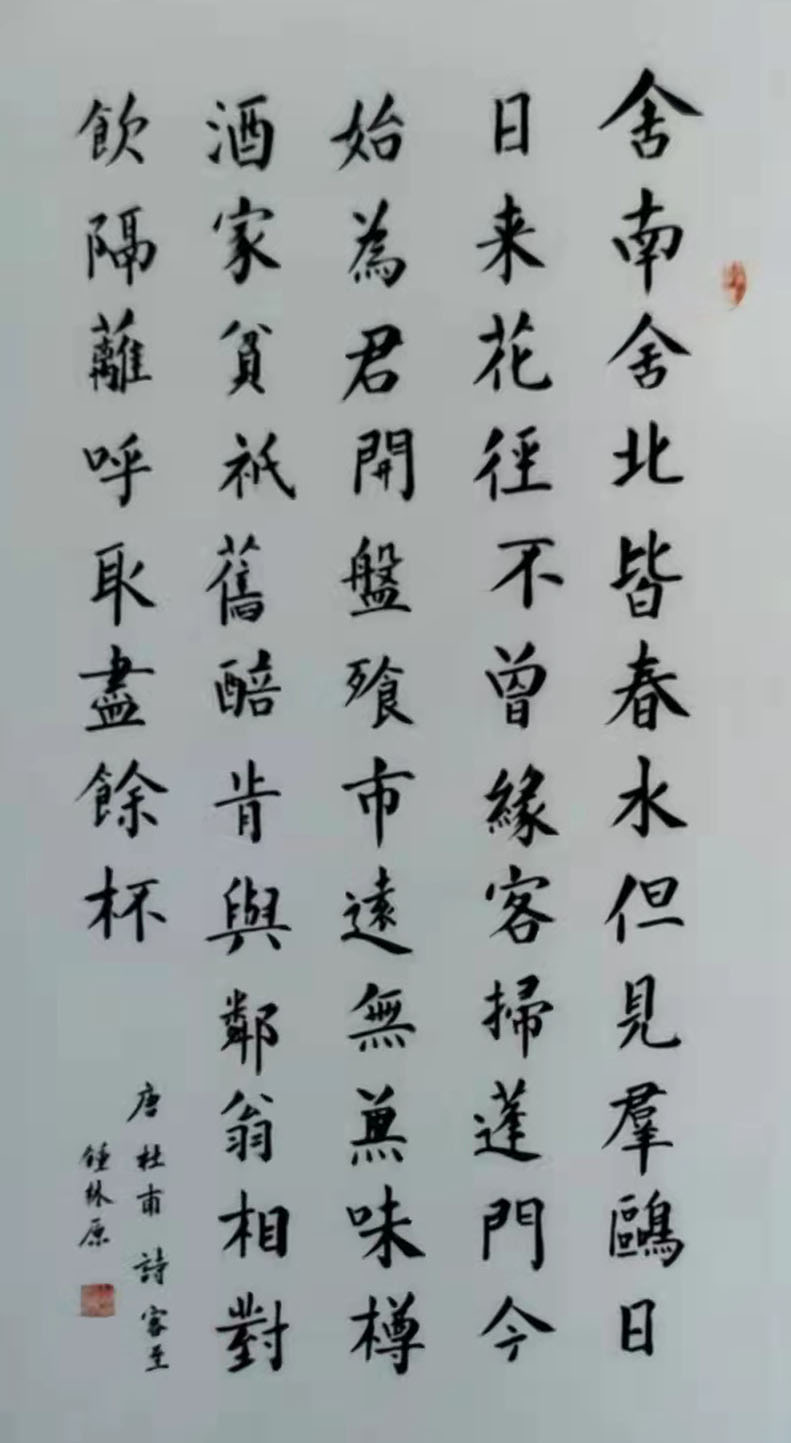 舍南舍北皆春水但見羣鷗日
日来花徑不曾緣客掃蓬門今
始為君開盤飱市遠無兼味樽
酒家貧祇舊醅肯與鄰翁相對
飲隔蘺呼取盡餘杯
唐杜甫詩客至
鍾林原